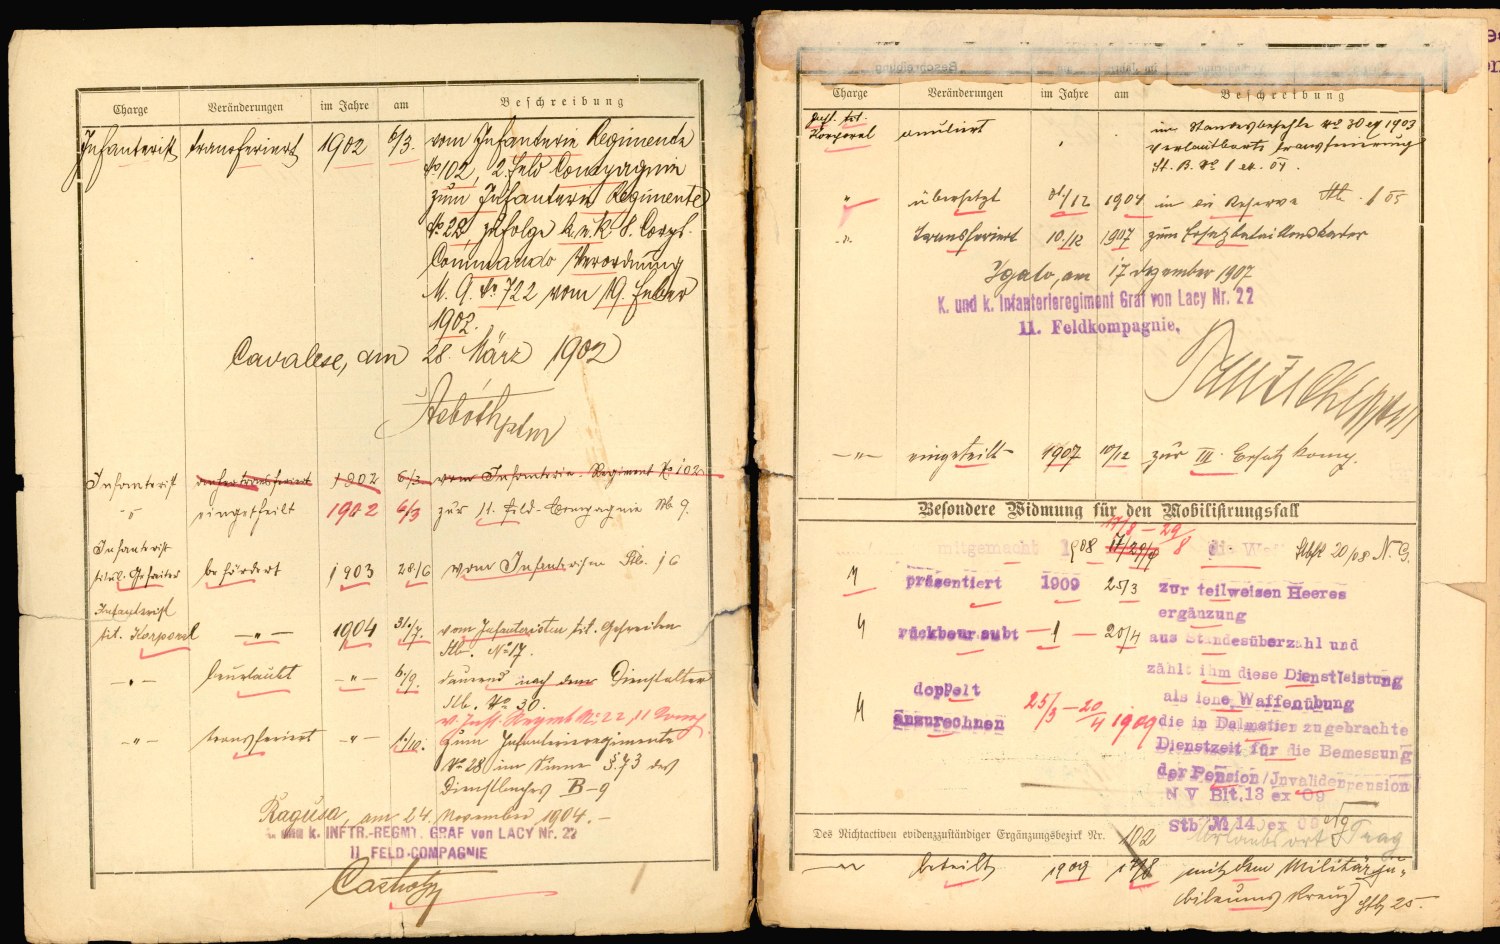 Charge Veränderungen im Jahre am Beschreibung
Infanterist transferiert 1902 6/3. vom Infanterie Regimente
No 102, 2. Feld Compagnie
zum Infanterie Regimente
No 22, zufolge k. u. k. 8. Corps.
Commando Verordnung
M. A. No 722 vom 19. Feber
1902.
Cavalese, am 28. März 1902
Infanterist transferiert 1902 6/3 vom Infanterie-Regiment No 102
" eingetheilt 1902 6/3 zur 11. Feld-Compagnie Stb 9.
Infanterist
titul. Gefreiter befördert 1903 28/6 vom Infanteristen Stb. 16
Infanterist
tit. Korporal -"- 1904 31./7. vom Infanteristen tit. Gefreiten
Stb. No 17.
-"- beurlaubt -"- 6./9. dauernd nach dem Dienstalter
Stb. No 30.
v. Inft. Regmt No 22, 11 Comp.
-"- transferiert -"- 1./10. zum Infanterieregimente
No 28 im Sinne § 73 des
Dienstbuches B-9
Ragusa, am 24. November 1904.-
k. und k. INFTR.-REGMT. GRAF von LACY Nr. 22
11 FELD-COMPAGNIE
Charge Veränderungen im Jahre am Beschreibung
Inft. tit.
Korporal anuliert im Standesbefehle No 30 ex 1903
verlautbarte Transferierung
St. B. No 1 ex. 04.
" übersetzt 31/12 1904 in die Reserve Stb. 1 05
-"- transferiert 10./12 1907 zum Ersatzbataillonskader
Igalo, am 17 Dezember 1907
K. und k. Infanterieregiment Graf von Lacy Nr. 22
11. Feldkompagnie.
-"- eingeteilt 1907 10/12 zur III. Ersatz komp.
Besondere Widmung für den Mobilisirungsfall
17/8 - 29/8
mitgemacht 1908 die Waf Stbft 20/08 N. G.
" präsentiert 1909 25/3 zur teilweisen Heeres
ergänzung
" rückbeurlaubt -"- 20/4 aus Standesüberzahl und
zählt ihm diese Dienstleistung
doppelt als iene Waffenübung
" anzurechnen 25/3 - 20/4 1909 die in Dalmatien zugebrachte
Dienstzeit für die Bemessung
der Pension/Invalidenpension
N V Blt. 13 ex 09
Stb № 14 ex 09
Des Nichtactiven evidenzzuständiger Ergänzungsbezirk Nr. 102 Urlaubsort Prag
-"- beteilt 1909 17/8 mit dem Militärju-
biläums Kreuz Stb 25.-